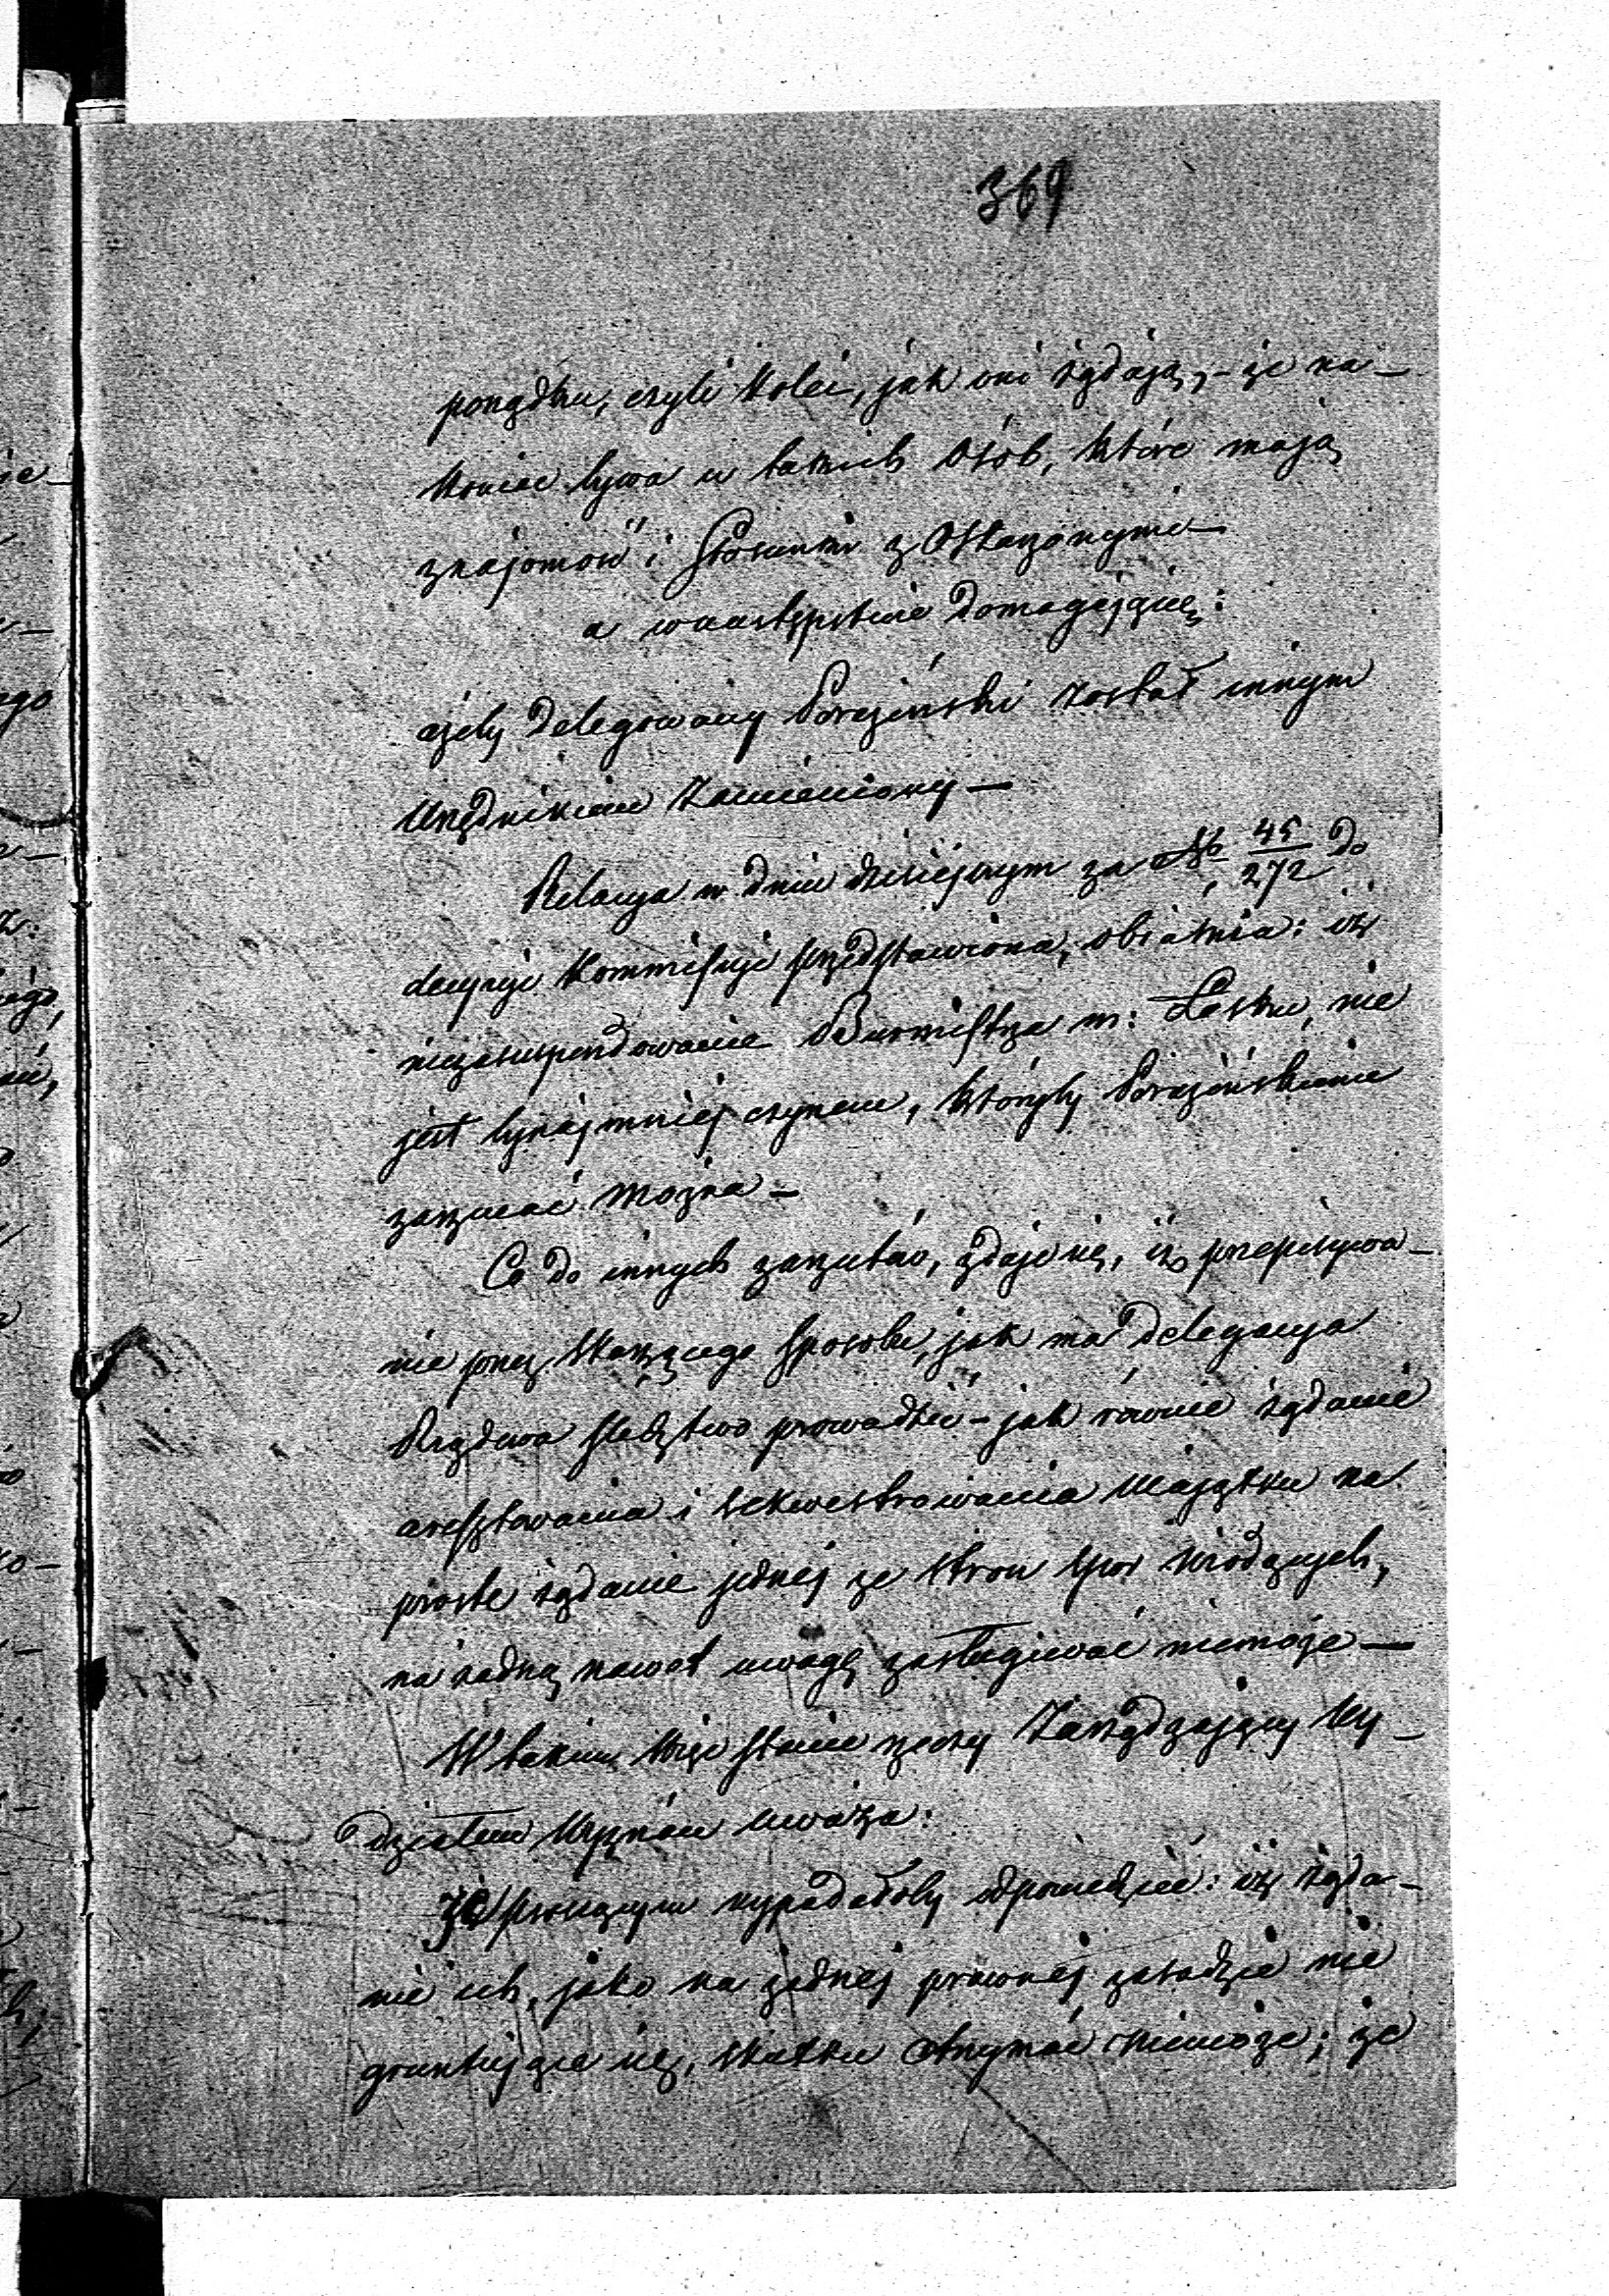 369
porządku, czyli kolei, jak oni żądają, – że na–
koniec bywa u takich osób, które mają
znajomość i stosunki z Oskarżonymi –
a w następstwie domagająsię:
ażeby Delegowany Poraziński został innym
Urzędnikiem zamieniony –
Relacya w dniu dzisiejszym za № 45/272 do
decyzyi Kommissyi przedstawiona, obiaśnia: iż
niezasuspendowanie Burmistrza m: Łasku, nie
jest bynajmniej czynem, któryby Porazińskiemu
zarzucać można –
Co do innych zarzutów, zdaje się, iż przepisywa–
nie przez skarżącego sposobu, jak ma Delegacya
Rządowa śledztwo prowadzić – jak równie żądanie
aresztowania i sekwestrowania Majątku na
proste żądanie jednej ze stron spór wiodących,
na żadną nawet uwagę zasługiwać niemoże –
W takim więc stanie rzeczy Zarządzający Wy–
działem Wyznań uważa:
Że proszącym wypadałoby odpowiedzieć: iż żąda–
nie ich, jako na żadnej prawnej zasadzie nie
gruntujące się, skutku otrzymać niemoże; że